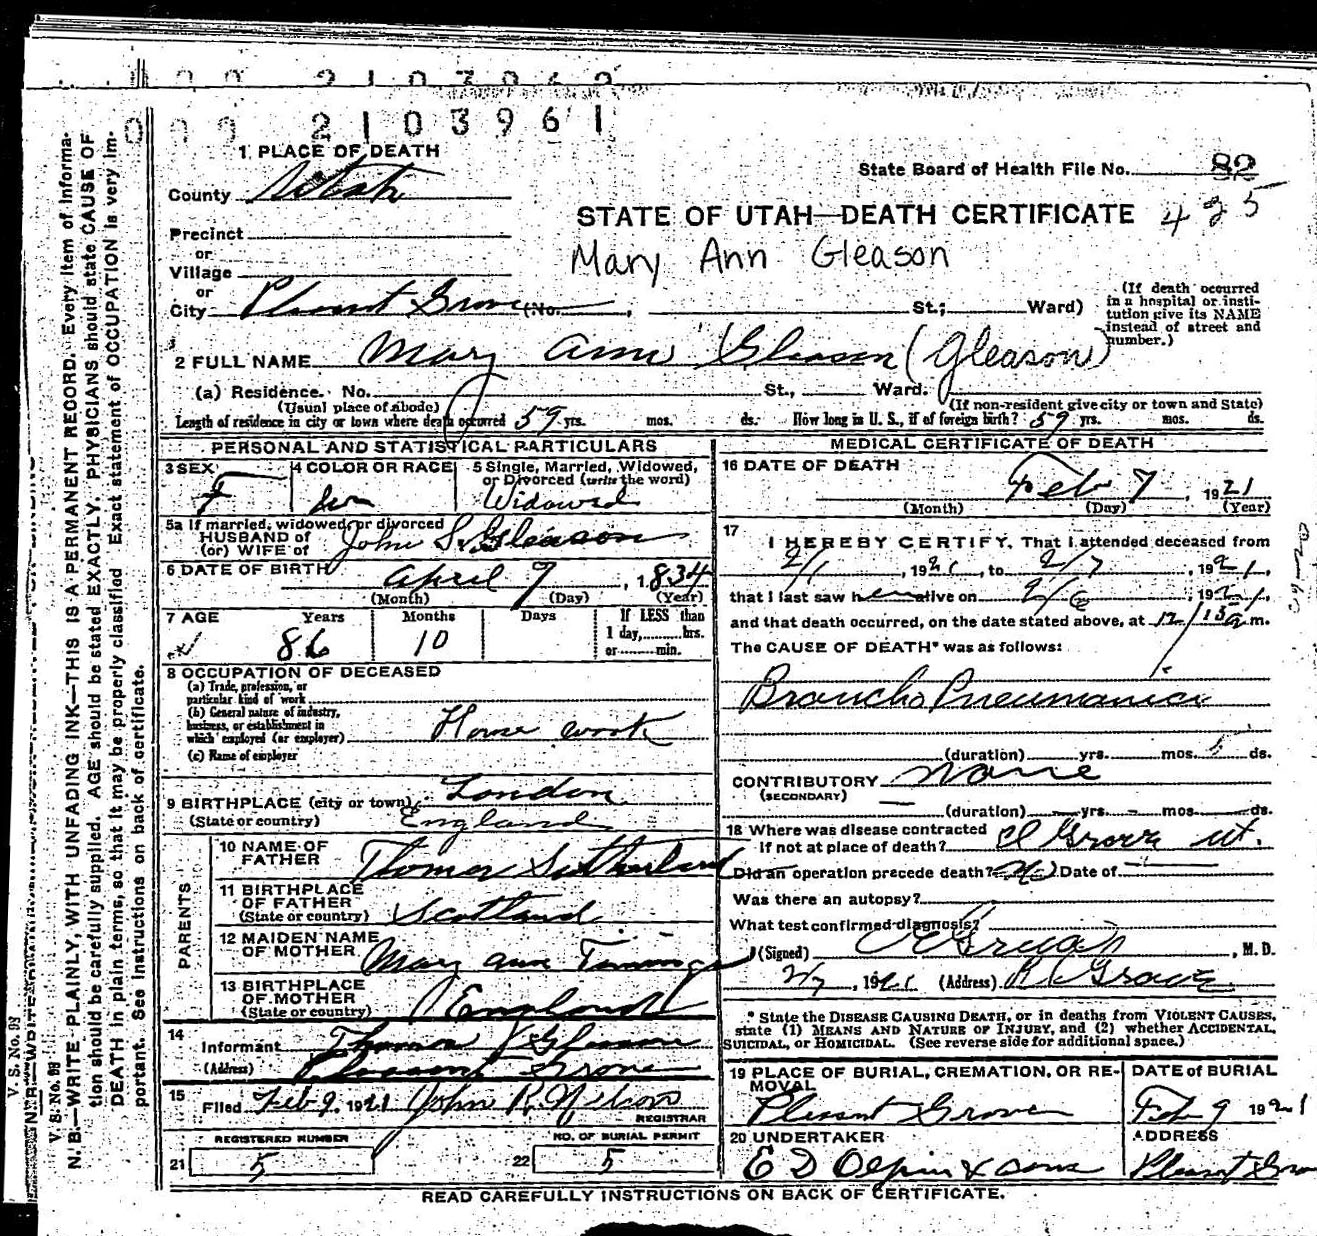 2103961
1 PLACE OF DEATH
State Board of Health File No. 82
County Utah
STATE OF UTAH—DEATH CERTIFICATE 425
Precinct
or
Mary Ann Gleason
Village
or
City Pleasant Grove (No. , St.; Ward)
(If death occurred in a hospital or insti-
tution give its NAME
instead of street and
number.)
2 FULL NAME Mary Ann Gleason (Gleason)
(a) Residence. No. St., Ward.
(Usual place of abode) (If non-resident give city or town and State)
Length of residence in city or town where death occurred 59 yrs. mos. ds. How long in U. S., if of foreign birth? 59 yrs. mos. ds.
PERSONAL AND STATISTICAL PARTICULARS
3 SEX F
4 COLOR OR RACE
5 Single, Married, Widowed,
or Divorced (write the word)
Widowed
5a If married, widowed, or divorced
HUSBAND of
(or) WIFE of John S. Gleason
6 DATE OF BIRTH April 9, 1834
(Month) (Day) (Year)
7 AGE Years Months Days If LESS than
1 day, hrs.
or min.
86 10
8 OCCUPATION OF DECEASED
(a) Trade, profession, or
particular kind of work
(b) General nature of industry,
business, or establishment in
which employed (or employer) House work
(c) Name of employer
9 BIRTHPLACE (city or town) London
(State or country) England
PARENTS
10 NAME OF
FATHER Thomas Sutherland
11 BIRTHPLACE
OF FATHER
(State or country) Scotland
12 MAIDEN NAME
OF MOTHER Mary Ann
13 BIRTHPLACE
OF MOTHER
(State or country) England
14
Informant Thomas Gleason
(Address) Pleasant Grove
15
Filed Feb 9, 1921 John R. Nelson
REGISTRAR
REGISTERED NUMBER
21 5
NO. OF BURIAL PERMIT
22 5
MEDICAL CERTIFICATE OF DEATH
16 DATE OF DEATH
Feb 7, 1921
(Month) (Day) (Year)
17
I HEREBY CERTIFY, That I attended deceased from
2/1, 1921, to 2/7, 1921,
that I last saw her alive on 2/6, 1921,
and that death occurred, on the date stated above, at 12/15a m.
The CAUSE OF DEATH* was as follows:
Broncho Pneumonia
(duration) yrs. mos. 5 ds.
CONTRIBUTORY None
(SECONDARY)
(duration) yrs. mos. ds.
18 Where was disease contracted
If not at place of death? Pl Grove Ut.
Did an operation precede death? No Date of
Was there an autopsy?
What test confirmed diagnosis?
(Signed) , M. D.
2/7, 1921 (Address) Pl Grove
* State the DISEASE CAUSING DEATH, or in deaths from VIOLENT CAUSES,
state (1) MEANS AND NATURE OF INJURY, and (2) whether ACCIDENTAL,
SUICIDAL, or HOMICIDAL. (See reverse side for additional space.)
19 PLACE OF BURIAL, CREMATION, OR RE-
MOVAL
Pleasant Grove
DATE of BURIAL
Feb 9 1921
20 UNDERTAKER
E D Olpin & Sons
ADDRESS
Pleasant Grove
READ CAREFULLY INSTRUCTIONS ON BACK OF CERTIFICATE.
V. S. No. 98
N. B.—WRITE PLAINLY, WITH UNFADING INK—THIS IS A PERMANENT RECORD. Every item of informa-
tion should be carefully supplied. AGE should be stated EXACTLY. PHYSICIANS should state CAUSE OF
DEATH in plain terms, so that it may be properly classified. Exact statement of OCCUPATION is very im-
portant. See instructions on back of certificate.